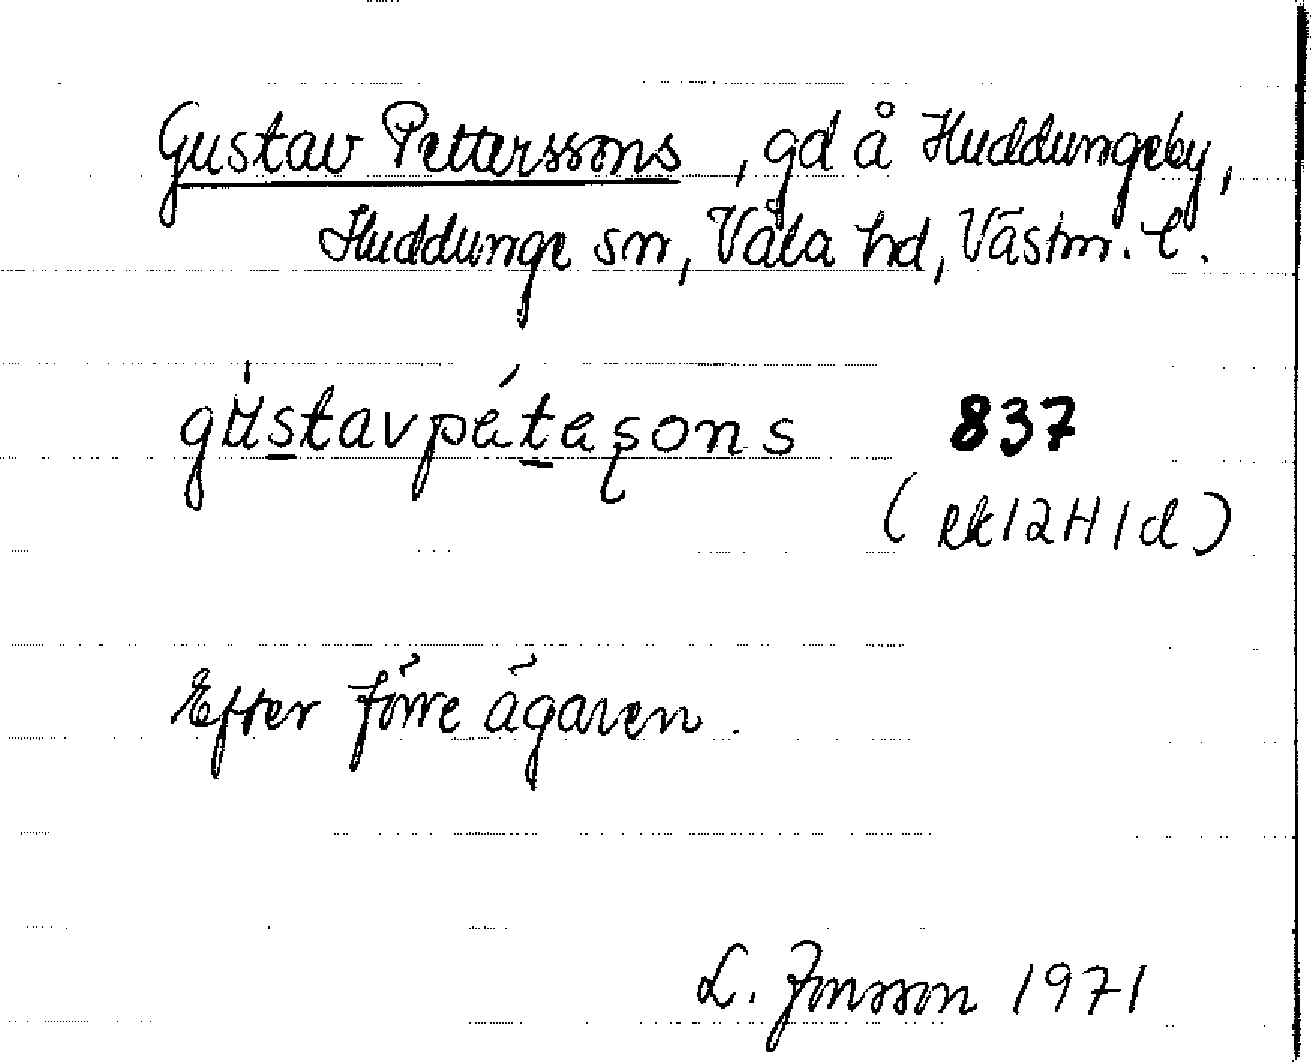 Gustav Petterssons, gd å Huddungeby,
Huddunge sn, Våla hd, Västm. l.
gústavpéteşons 837
(ek 12H1d)
Efter förre ägaren.
L. Jonsson 1971